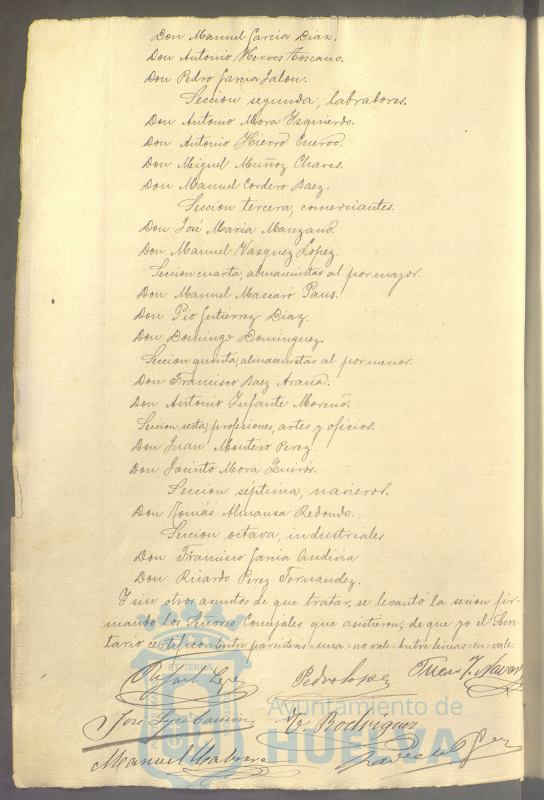 Don Manuel Garcia Diaz.
Don Antonio Herves Toscano.
Don Pedro Garcia Jalon.
Seccion segunda, labradores.
Don Antonio Mora Izquierdo.
Don Antonio Hierro Cuervo.
Don Miguel Muñoz Chaves.
Don Manuel Cordero Baez.
Seccion tercera, comerciantes.
Don José Maria Manzano.
Don Manuel Vazquez Lopez.
Seccion cuarta, almacenistas al por mayor.
Don Manuel Mascaró Paus.
Don Pio Gutiérrez Diaz.
Don Domingo Dominguez.
Seccion quinta, almacenistas al por menor.
Don Francisco Baez Arana.
Don Antonio Infante Moreno.
Seccion sesta, profesiones, artes y oficios.
Don Juan Montero Perez
Don Jacinto Mora Quirós.
Seccion septima, navieros.
Don Tomás Almansa Redondo.
Seccion octava, industriales
Don Francisco Garcia Andivia
Don Ricardo Perez Fernandez.
Y sin otros asuntos de que tratar, se levantó la sesion fir-
mando los Señores Concejales que asistieron, de que yo el Secre-
tario certifico.=Entre parentesis=una=no vale=Entre lineas=en=vale.
Rafael Lopez Pedro Lopez Juan
José
V. Rodriguez
Manuel
Ayuntamiento de
HUELVA